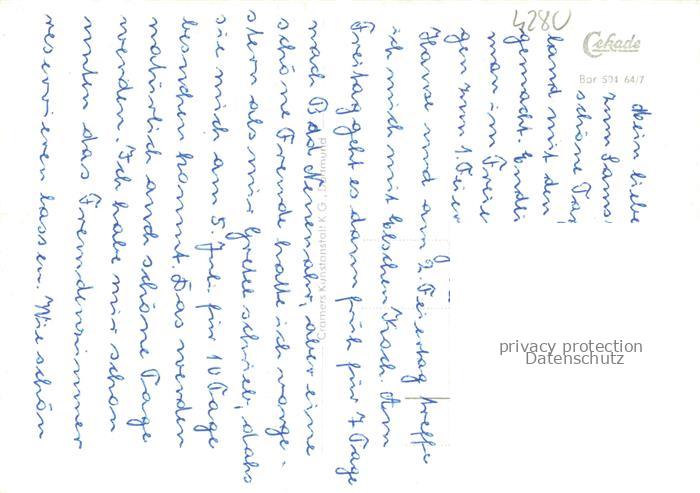 4280
Cekade
Bar 504 64/7
Mein liebe
zum Sams
schöne Ta
land mit den
gemacht. Endli
man im Freie
gen zum 1. Feier
Hause und am 2. Feiertag treffe
ich mich mit Elschen Koch. Am
Freitag geht es dann früh für 7 Tage
nach Bad Neuenahr, aber eine
schöne Freude hatte ich vorge-
stern als mir Gretel schrieb, dahs
sie mich am 5. Juli für 10 Tage
besuchen kommt. Das werden
natürlich auch schöne Tage
werden. Ich habe mir schon
unten das Fremdenzimmer
reservieren lassen. Wie schön
Cramers Kunstanstalt K.G., Dortmund
privacy protection
Datenschutz